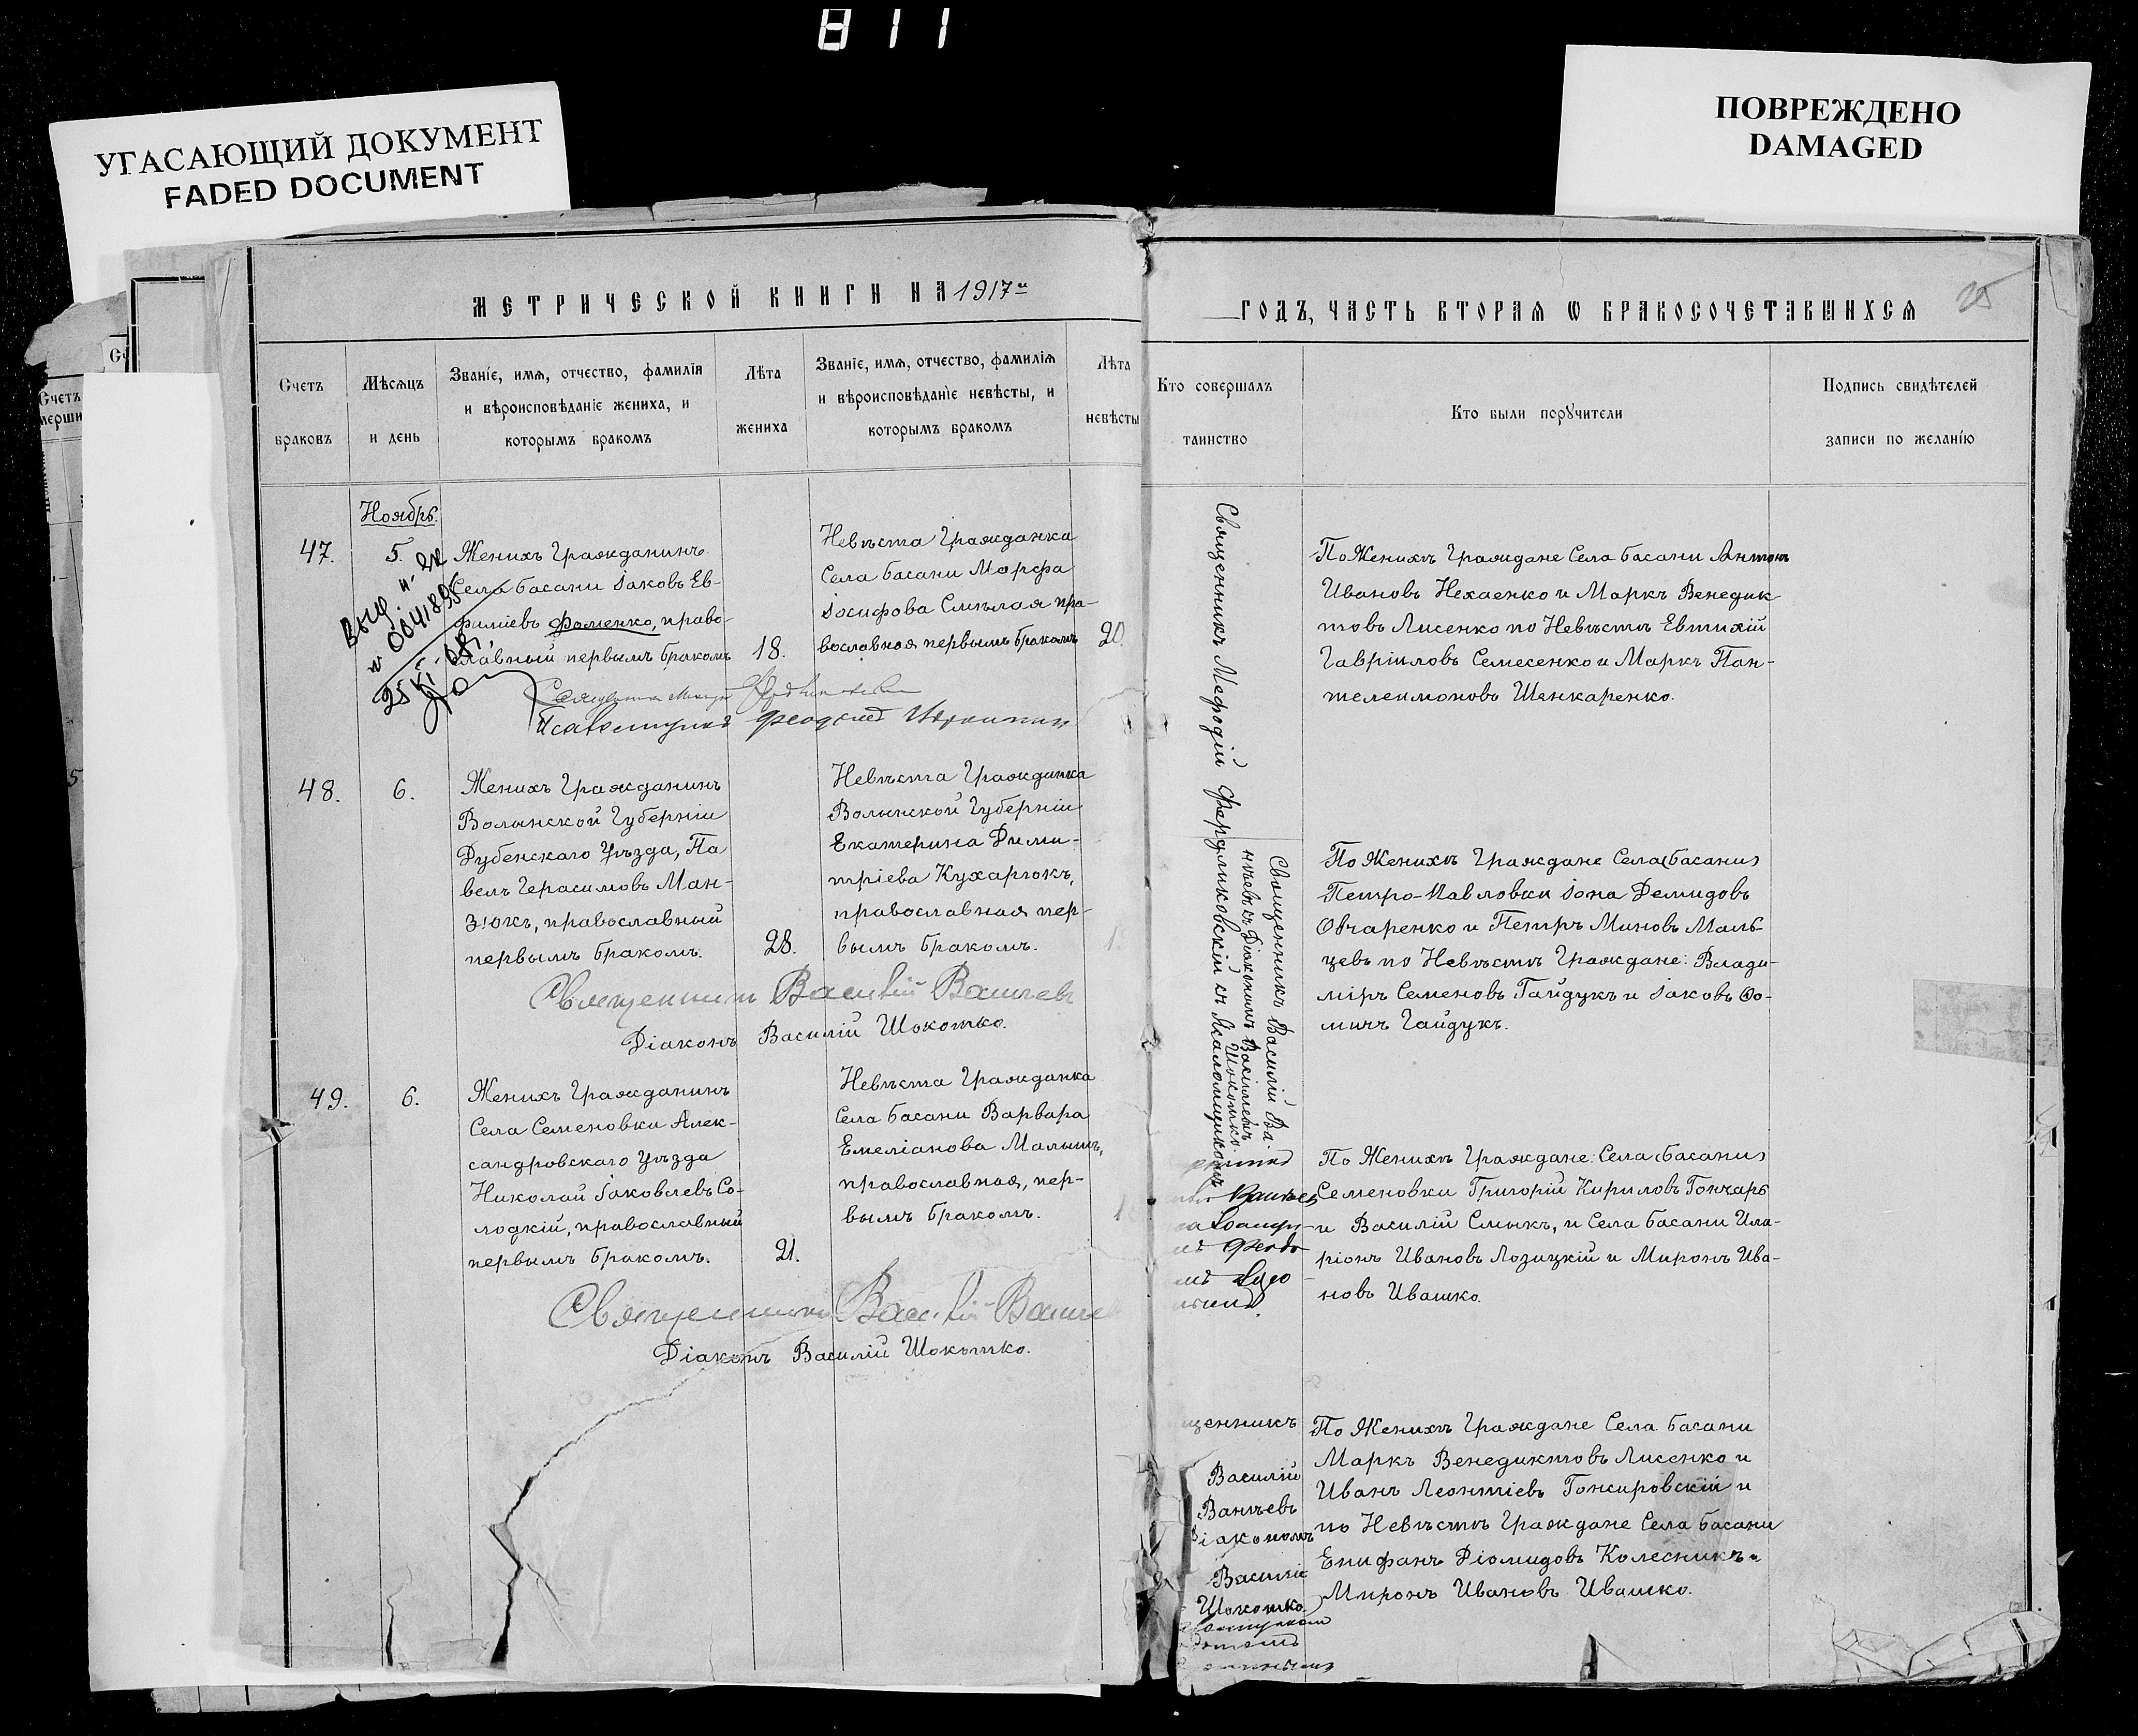 811
УГАСАЮЩИЙ ДОКУМЕНТ
FADED DOCUMENT
ПОВРЕЖДЕНО
DAMAGED
МЕТРИЧЕСКОЙ КНИГИ НА 1917й
Счетъ
браковъ
Мѣсяцъ
и день
Званіе, имя, отчество, фамилія
и вѣроисповѣданіе жениха, и
которымъ бракомъ
Лѣта
жениха
Званіе, имя, отчество, фамилія
и вѣроисповѣданіе невѣсты, и
которымъ бракомъ
Лѣта
невѣсты
Ноябрь.
47.
5.
Женихъ Гражданинъ
Села Басани Іаковъ Ев-
фиміевъ Фоменко, право-
славный первымъ бракомъ
18.
Невѣста Гражданка
Села Басани Марфа
Іосифова Смѣлая пра-
вославная первымъ бракомъ
20.
48.
6.
Женихъ Гражданинъ
Волынской Губерніи
Дубенскаго Уѣзда, Па
велъ Герасимовъ Ман-
зюкъ, православный
первымъ бракомъ.
28.
Невѣста Гражданка
Волынской Губерніи
Екатерина Дими-
тріева Кухарюкъ,
православная пер-
вымъ бракомъ.
Священникъ Василій Ванчевъ
Діаконъ Василій Шокотко.
49.
6.
Женихъ Гражданинъ
Села Семеновки Алек-
сандровскаго Уѣзда
Николай Іаковлевъ Со-
лодкій, православный
первымъ бракомъ.
21.
Невѣста Гражданка
Села Басани Варвара
Емеліанова Малышъ,
православная, пер-
вымъ бракомъ.
Священникъ Василій Ванчев
Діаконъ Василій Шокотко.
ГОДЪ, ЧАСТЬ ВТОРАЯ Ѡ БРАКОСОЧЕТАВШИХСЯ
25
Кто совершалъ
таинство
Кто были порꙋчители
Подпись свидѣтелей
записи по желанію
Священникъ Мефодій Фердликовскій съ Псаломщикомъ
По Женихѣ Граждане Села Басани Антонъ
Ивановъ Нехаенко и Маркъ Венедик
товъ Лисенко по Невѣстѣ Евтихій
Гавріиловъ Семесенко и Маркъ Пан-
телеимоновъ Шенкаренко.
Священникъ Василій Ва.
нчевъ съ Діакономъ Василіемъ
Шокотко.
По Женихѣ Граждане Села (Басани)
Петро-Павловки Іона Демидовъ
Овчаренко и Петръ Миновъ Маль-
цевъ по Невѣстѣ Граждане: Влади-
міръ Семеновъ Гайдукъ и Іаковъ Ѳо-
мичъ Гайдукъ.
По Женихѣ Граждане: Села (Басани)
Семеновки Григорій Кириловъ Гончаръ
и Василій Смыкъ, и Села Басани Ила-
ріонъ Ивановъ Лозицкій и Миронъ Ива-
новъ Ивашко.
щенникъ
Василій
Ванчевъ
Діакономъ
Василіе
Шокотко
По Женихѣ Граждане Села Басани
Маркъ Венедиктовъ Лисенко и
Иванъ Леонтіевъ Гонсировскій и
по Невѣстѣ Граждане Села Басани
Епифанъ Діомидовъ Колесникъ и
Миронъ Ивановъ Ивашко.